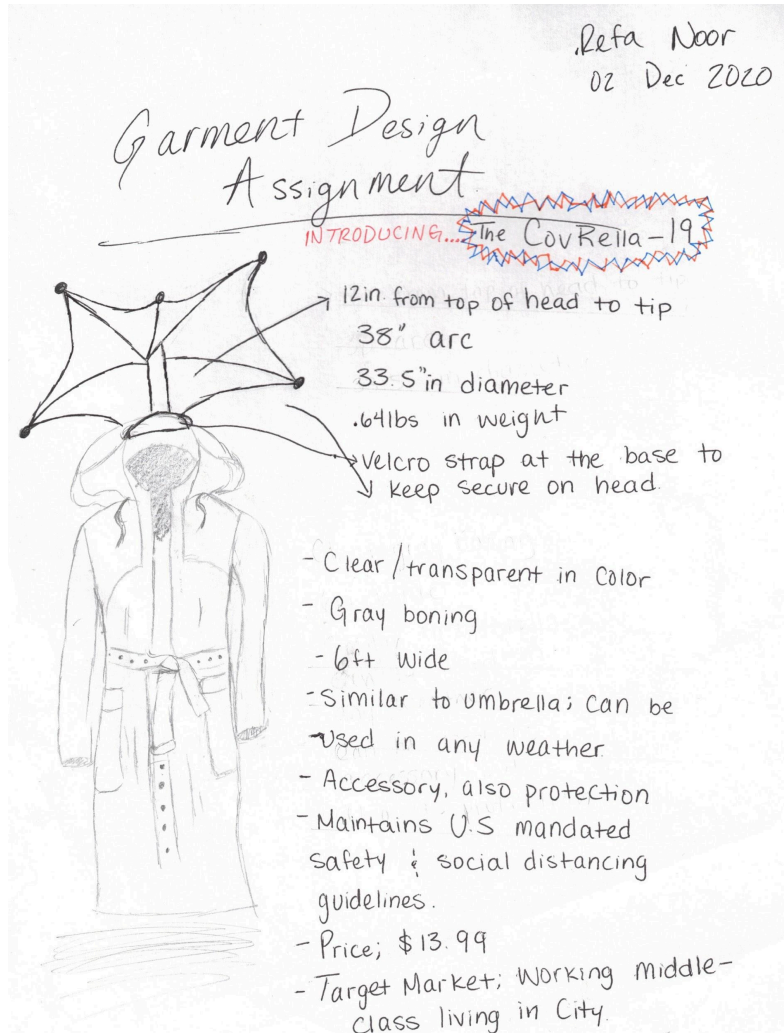 Refa Noor
02 Dec 2020
Garment Design
Assignment
INTRODUCING.... The CovRella-19
12in. from top of head to tip
38" arc
33.5" in diameter
.64lbs in weight
Velcro strap at the base to
keep secure on head.
- Clear/transparent in Color
- Gray boning
- 6ft wide
- Similar to umbrella; can be
used in any weather
- Accessory, also protection
- Maintains U.S mandated
safety & social distancing
guidelines.
- Price; $13.99
- Target Market; Working middle-
class living in City.